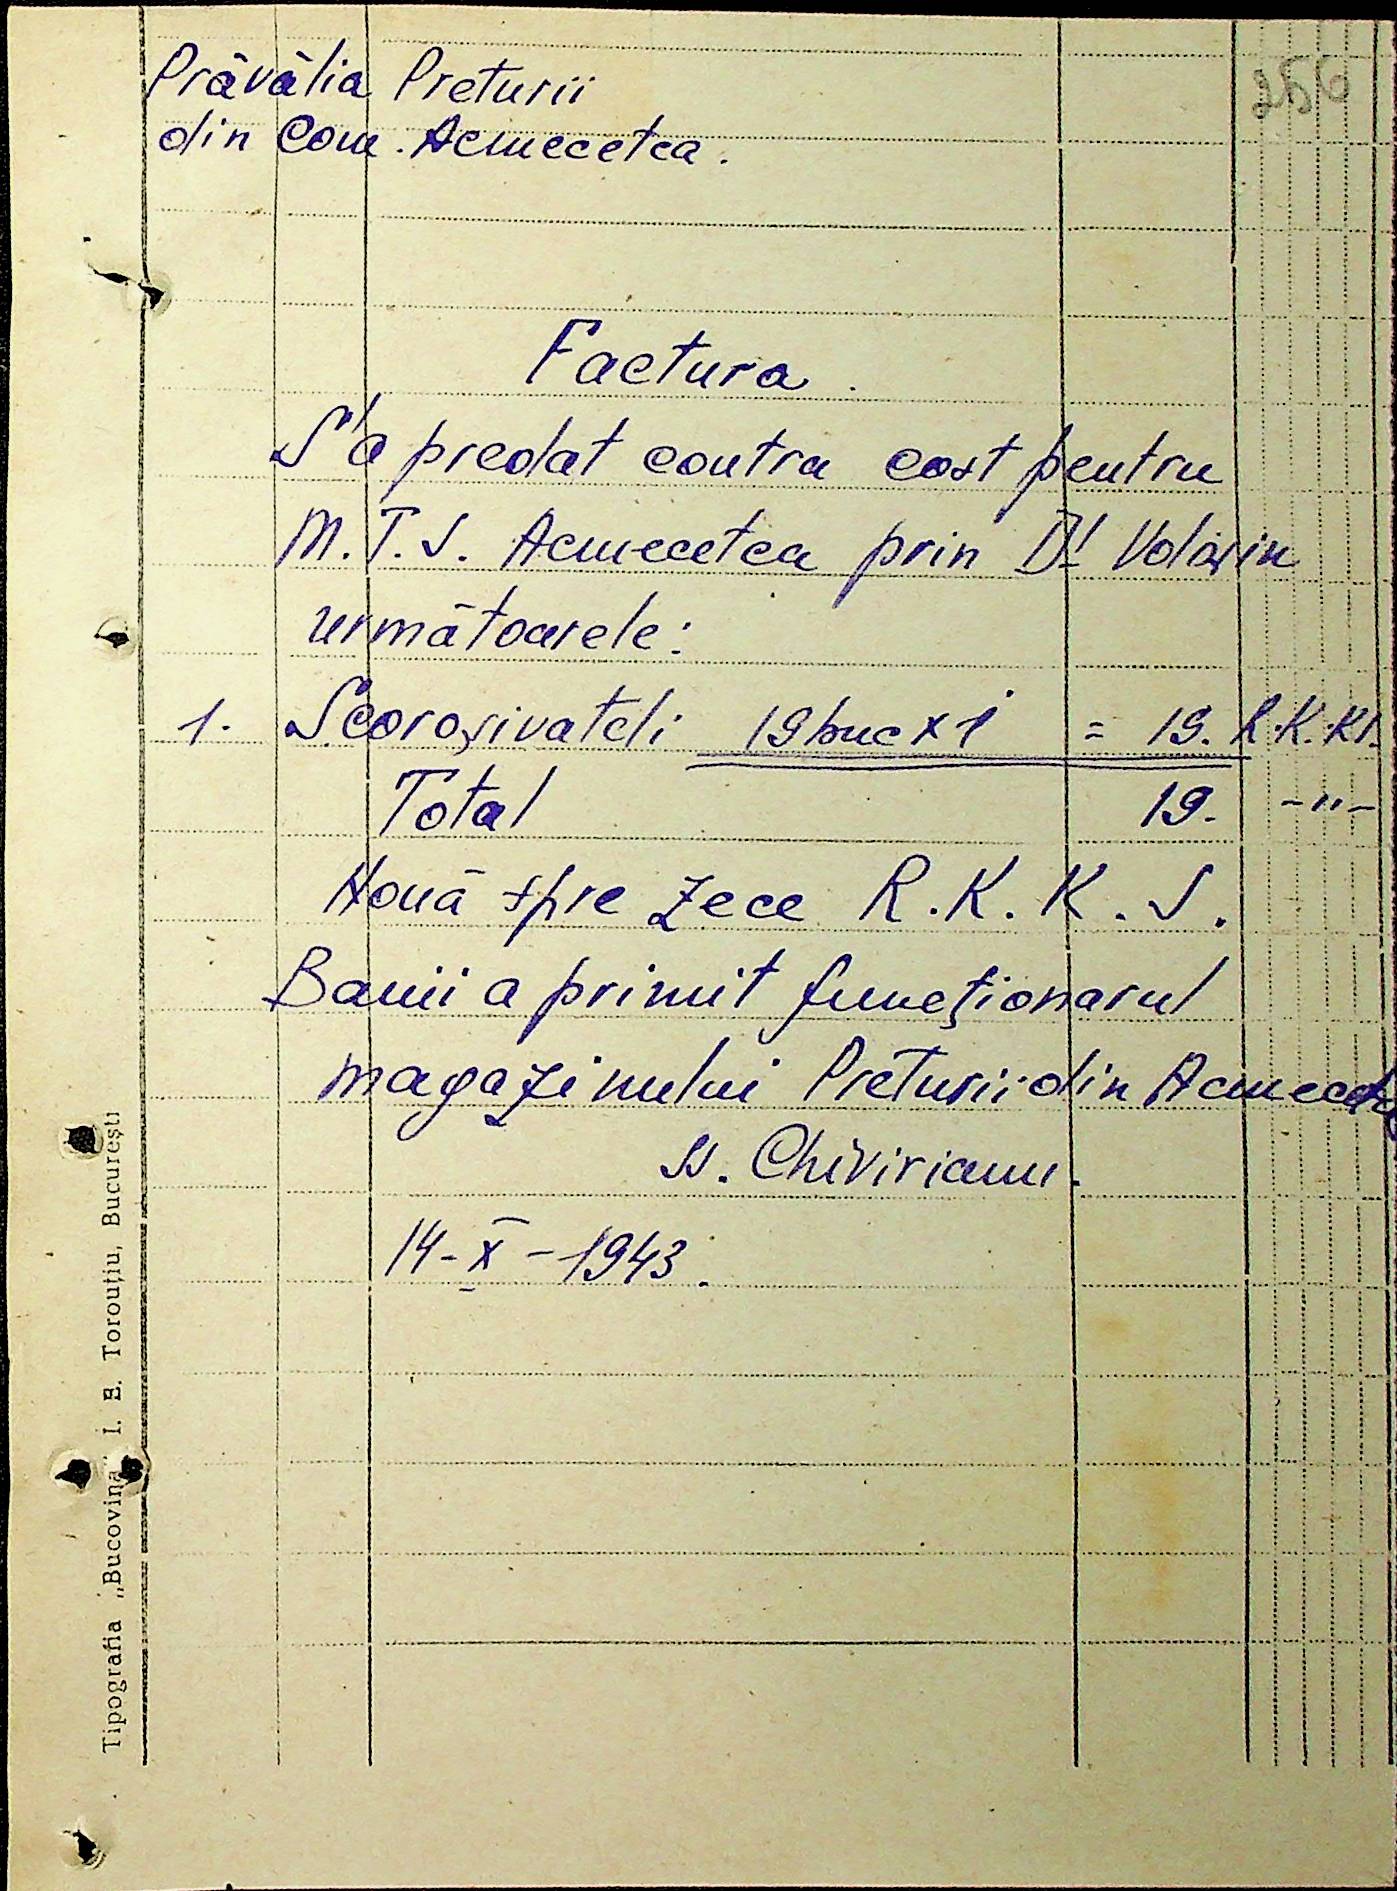 256
Prăvălia Preturii
din Com. Acmecetca.
Factura.
S'a predat contra cost pentru
M.T.S. Acmecetca prin Dl Voloșin
următoarele:
1. Scoroșivateli 19 buc x 1 = 19. R.K.Kl.
Total 19. -"-
Nouă spre zece R.K.K.S.
Banii a primit funcționarul
magazinului Preturii din Acmecetca
ss. Chivirianu.
14-X-1943.
Tipografia „Bucovina" I. E. Torouțiu, București